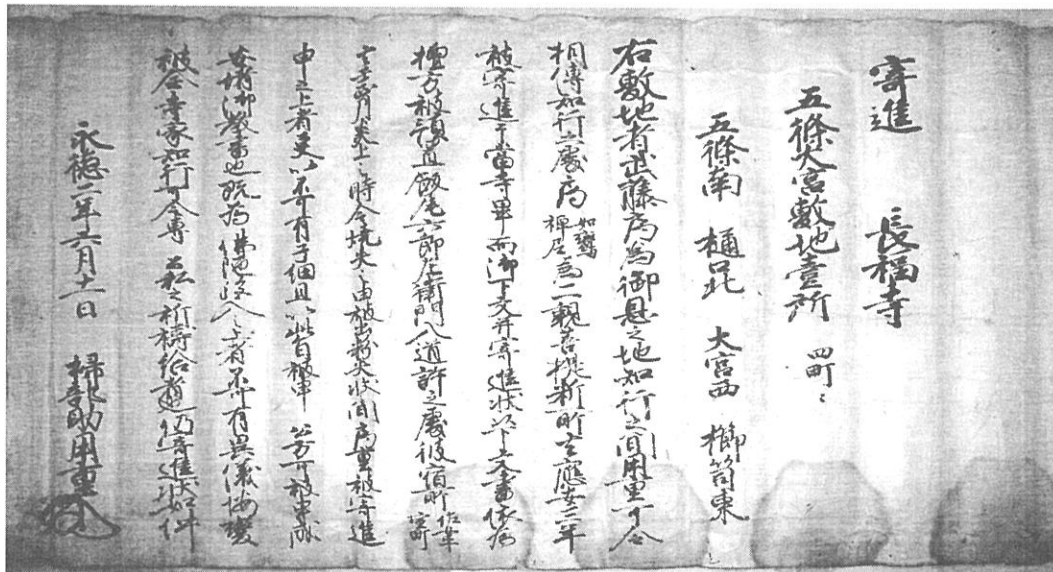 寄進 長福寺
五條大宮敷地壹所 四町々
五條南 樋口北 大宮西 櫛笥東
右敷地者武藤為御恩之地知行之間用重可令
相傳知行之處為如鸞禅尼為二親菩提料所去應安二年
被寄進于當寺畢而御下文并寄進状以下文書依為
被預置飯尾六郎左衛門入道許之處彼宿所
炎上之時令焼失之由被出紛失状間為重被寄進
申之上者更以不可有子細且以此旨被申 公方可被申成
安堵御挙書也既為佛陀施入之上者不可有異儀
被全寺家知行可令專公私之祈祷給者也仍寄進状如件
永徳二年六月十一日 掃部助用重